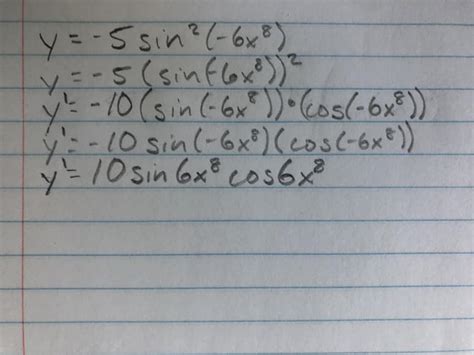 y = -5 sin²(-6x⁸)
y = -5 (sin(-6x⁸))²
y' = -10 (sin(-6x⁸)) • (cos(-6x⁸))
y' = -10 sin(-6x⁸)(cos(-6x⁸))
y' = 10 sin6x⁸ cos6x⁸